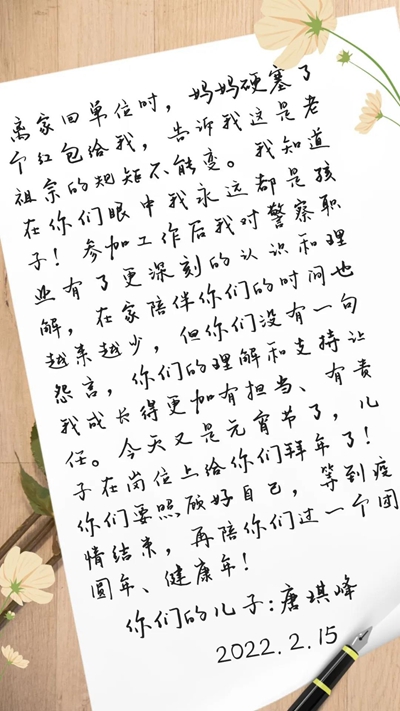 离家回单位时，妈妈硬塞了
个红包给我，告诉我这是老
祖宗的规矩不能变。我知道
在你们眼中我永远都是孩
子！参加工作后我对警察职
业有了更深刻的认识和理
解，在家陪伴你们的时间也
越来越少，但你们没有一句
怨言，你们的理解和支持让
我成长得更加有担当、有责
任。今天又是元宵节了，儿
子在岗位上给你们拜年了！
你们要照顾好自己，等到疫
情结束，再陪你们过一个团
圆年、健康年！
你们的儿子：唐琪峰
2022.2.15